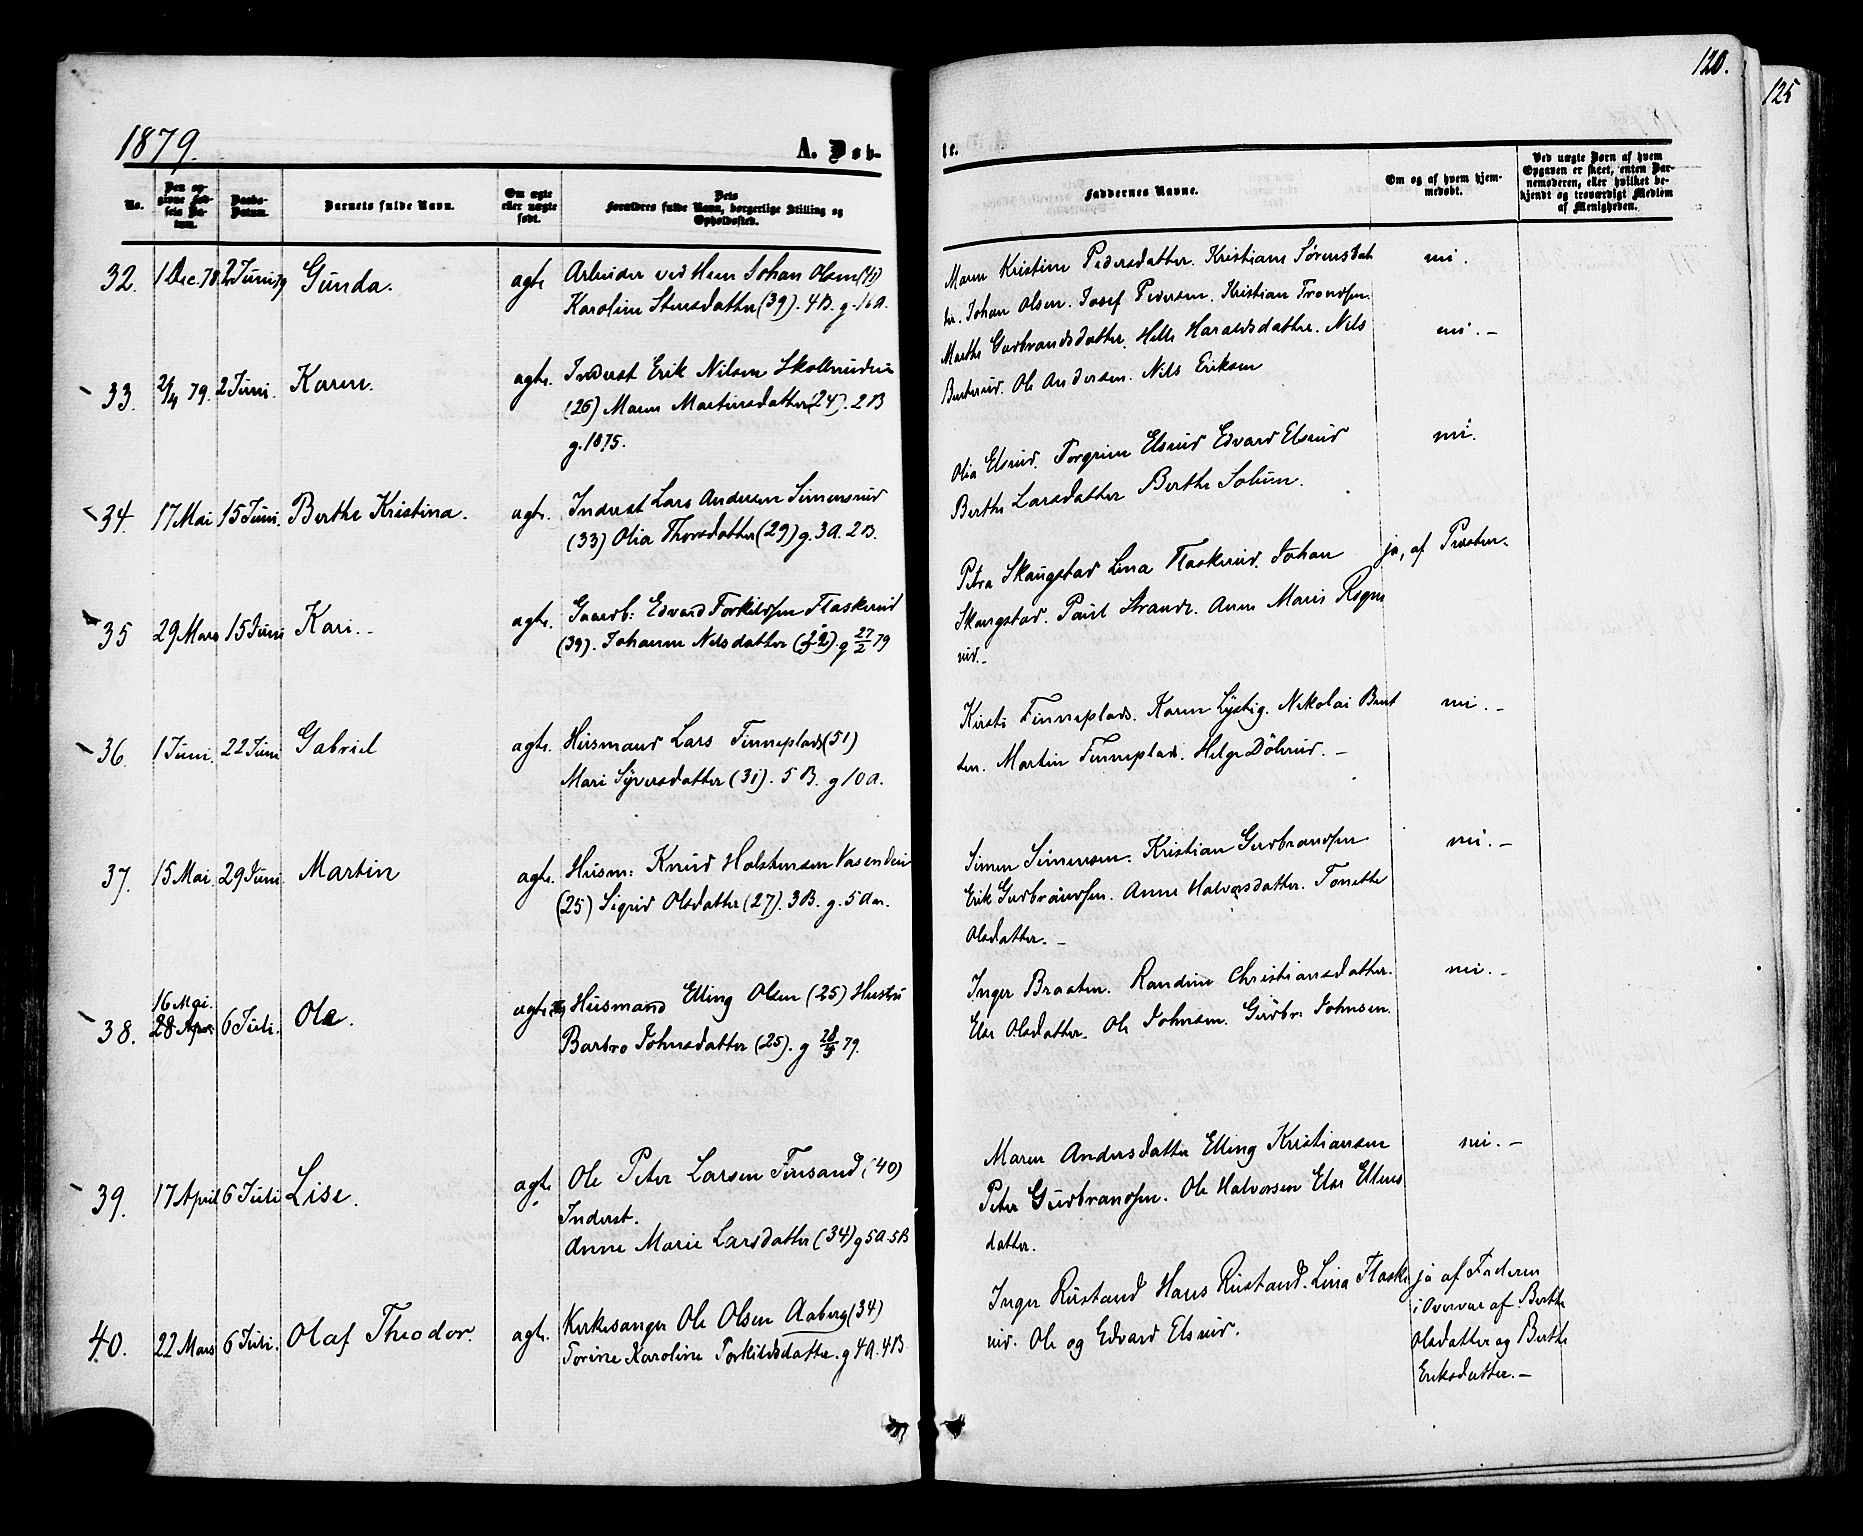 120.
125
1879.
A. Døb-
te.
No.
Den opgivne Fødsels Datum.
Daabs-Datum.
Barnets fulde Navn.
Om ægte eller uægte født.
Dets Forældres fulde Navn, borgerlige Stilling og Opholdssted.
Faddernes Navne.
Om og af hvem hjemmedøbt.
Ved uægte Børn af hvem Opgaven er skeet, enten Barnemoderen, eller hvilket bekjendt og troværdigt Medlem af Menigheden.
32. 1 Dec. 78. 2 Juni 79 Gunda. ægte Arbeider ved Hsm Johan Olsen (41)
Karoline Stensdatter (39). 4B. g. 16A.
Maren Kristine Pedersdatter. Kristiane Sørensdat
ter. Johan Olsen. Josef Pedersen. Kristian Trondsen.
nei.
33. 2/4 79. 2 Juni. Karen. ægte. Inderst Erik Nilsen Skollerudeie
(26) Maren Martinsdatter (24). 2B
g. 1875.
Marthe Gudbrandsdatter. Helle Haraldsdatter. Nils
Benterud. Ole Andersen. Nils Eriksen
nei. -
34. 17 Mai 15 Juni. Berthe Kristina. ægte. Inderst Lars Andersen Simensrud
(33) Olia Thorsdatter (29) g. 3A. 2B.
Olia Elsrud. Torgrim Elsrud Edvard Elsrud
Berthe Larsdatter Berthe Solum.
nei.
35 29 Mars 15 Juni Kari. - ægte. Gaardb: Edvard Torkildsen Flaskerud
(39). Johanne Nilsdatter g 27/2 79
Petra Skaugstad Lina Flaskerud. Johan
Skaugstad. Paul Strande. Anne Marie Rogne
rud. -
ja, af Præsten.
36. 1 Juni. 22 Juni Gabriel ægte. Husmand Lars Finneplads (51)
Mari Syversdatter (31). 5 B. g 10A.
Kirsti Finneplads. Karen Lystig. Nikolai Bent
sen. Martin Finneplads. Helge Dölerud. -
nei. -
37. 15 Mai. 29 Juni. Martin ægte. Husm: Knud Holstensen Vasendeie
(25) Sigrid Olsdatter (27). 3B. g. 5 Aar.
Simen Simensen. Kristian Gudbrandsen
Erik Gudbrandsen. Anne Halvorsdatter. Tonette
Olsdatter. -
nei. -
38. 16 Mai. 28 April 6 Juli. Ole. ægte Husmand Elling Olsen (25) Hustru
Barbro Johnsdatter (25). g 28/3 79.
Inger Braaten. Randine Christiansdatter.
Else Olsdatter. Ole Johnsen. Gudbr: Johnsen.
nei. -
39. 17 April 6 Juli Lise. ægte Ole Peter Larsen Finsand (40)
Inderst.
Anne Marie Larsdatter (34) g 5A. 5B
Maren Andersdatter Elling Kristiansen
Peter Gudbrandsen. Ole Halvorsen Else Ellens
datter.
nei. -
40. 22 Mars 6 Juli. Olaf Theodor. ægte. Kirkesanger Ole Olsen Aaberg (34)
Torine Karoline Torkildsdatter. g 4A. 4B.
Inger Rustand Hans Rustand. Lina Flaske
rud. Ole og Edvard Elsrud.
ja af Faderen
i Overvær af Berthe
Olsdatter og Berthe
Eriksdatter. -